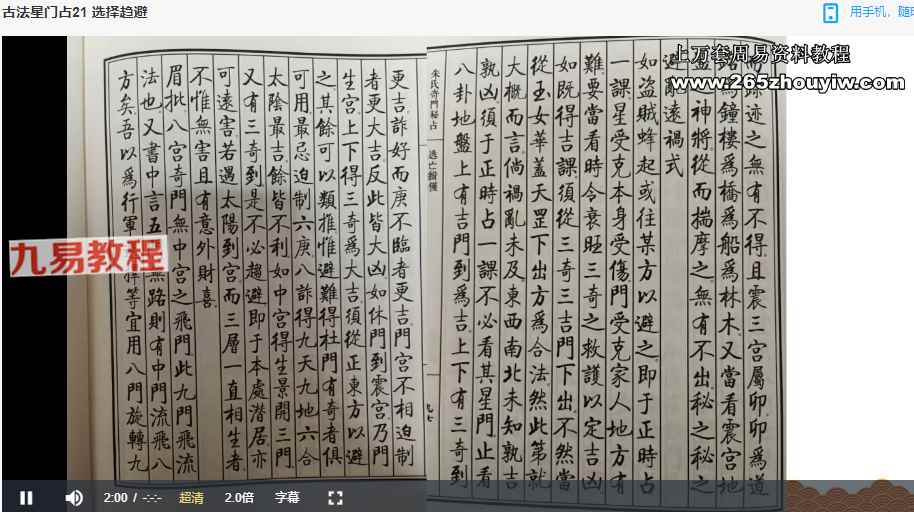 古法星门占21 选择趋避
用手机，随时
上万套周易资料教程
www.265zhouyiw.com
而踪迹之無有不得且震三宮屬卯卯爲道
路爲鐘樓爲橋爲船爲林木又當看震宮地
盤神將從而揣摩之無有不出秘之秘之
避亂遠禍式
如盜賊蜂起或往某方以避之即于正時占
一課星受克本身受傷門受克家人地方有
難要當看時令衰旺三奇之救護以定吉凶
如既得吉課須從三奇三吉門下出不然當
從玉女華蓋天罡下出方爲合法然此第就
大概而言倘禍亂未及東西南北未知孰吉
孰凶須于正時占一課不必看其星門止看
八卦地盤上有吉門到爲吉上下有三奇到
朱氏奇門秘占
九七
更吉詐好而庚不臨者更吉門宮不相迫制
者更大吉反此皆大凶如休門到震宮乃門
生宮上下得三奇爲大吉須從正東方以避
之其餘可以類推惟避難得杜門有奇者俱
可用最忌迫制六庚八詐得九天九地六合
太陰最吉餘皆不利如中宮得生景開三門
又有三奇到是不必趨避即于本處潛居亦
可遠害若遇太陽到宮而三層一直相生者
不惟無害且有意外財喜
眉批八宮奇門無中宮之飛門此九門飛流
法也又書中言五
無路則有中門流飛八
方矣吾以爲行軍
擇等宜用八門旋轉九
九易教程
2:00 / -:-:-
超清
2.0倍
字幕